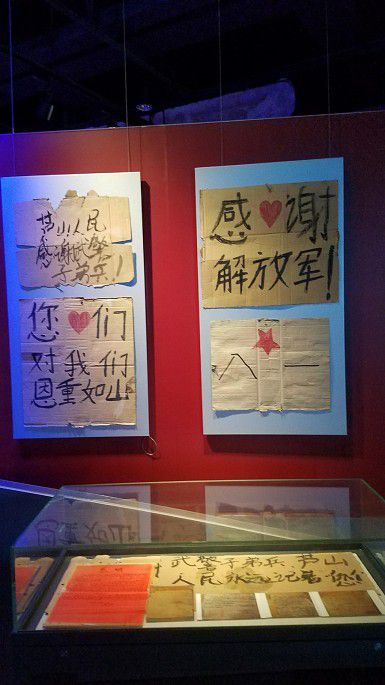 芦山人民
感谢武警
子弟兵!
您❤们
对我们
恩重如山
感❤谢
解放军!
八★一
武警子弟兵,芦山
人民永远记着您!